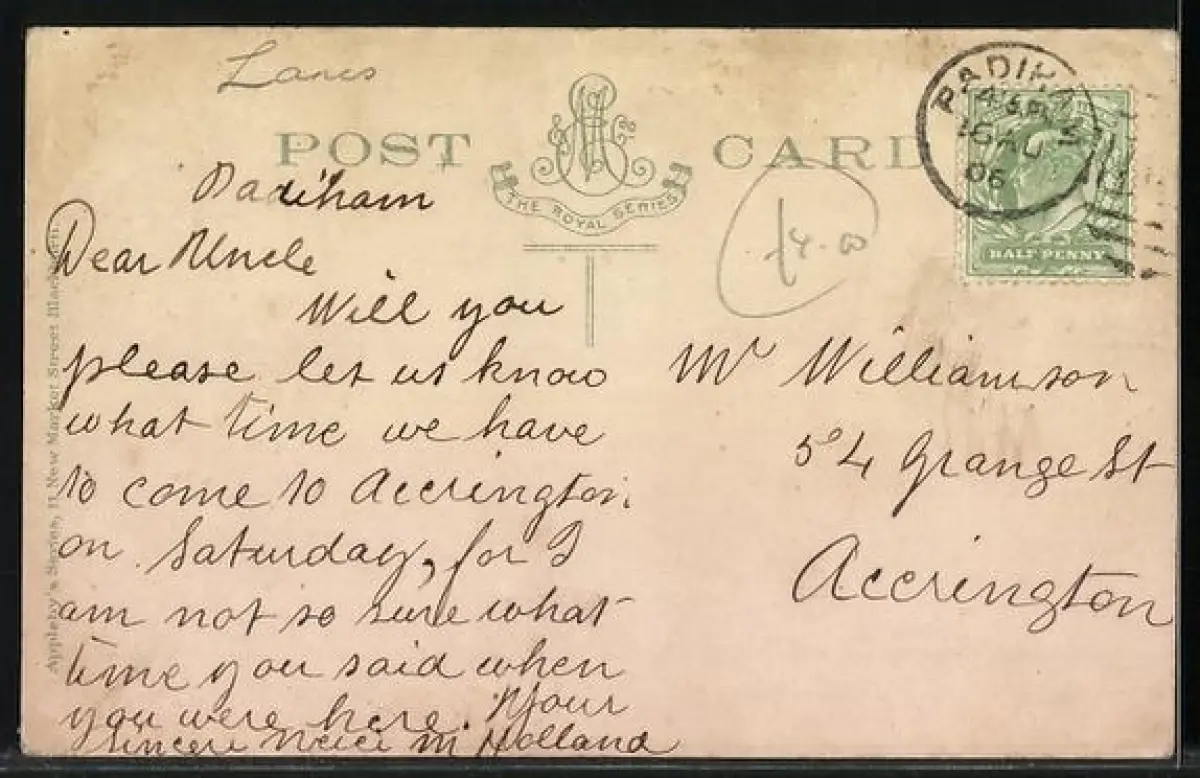 Lancs
POST CARD
THE ROYAL SERIES
PADIHAM
16 AU
06
HALF PENNY
Padiham
Dear Uncle
Will you
please let us know
what time we have
to come to Accrington
on Saturday, for I
am not so sure what
time you said when
you were here. Your
sincere neice M Holland
Mr Williamson
54 Grange St
Accrington
Appleby's Series, 11 New Market Street